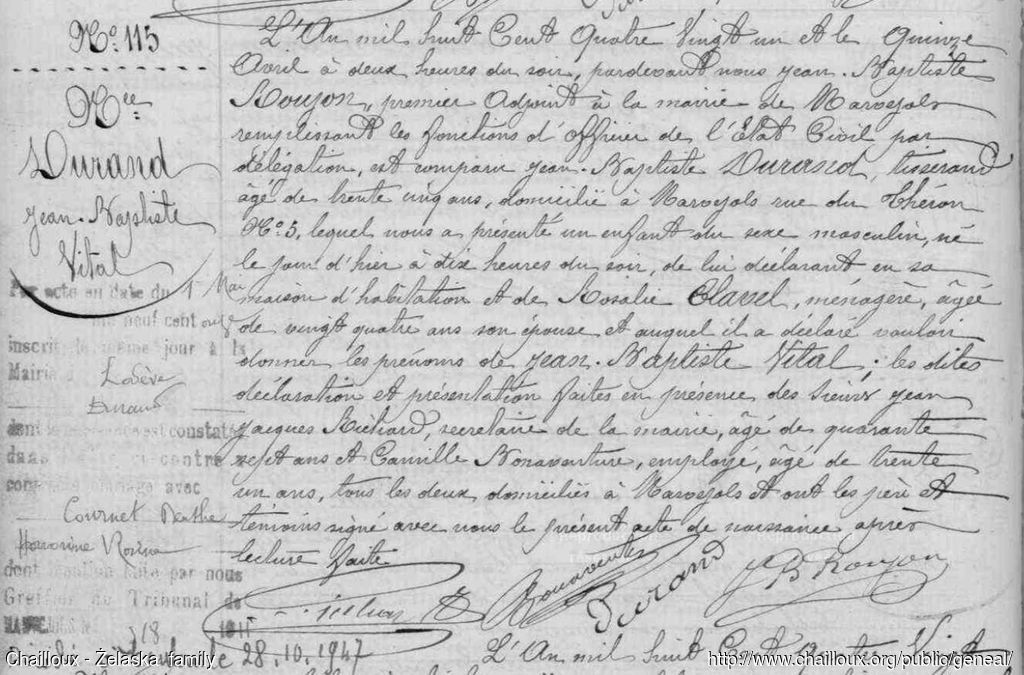 N.° 115
N.ce
Durand
Jean-Baptiste
Vital
Par acte en date du 1 Mai
mil neuf cent onze
inscrit le même jour à la
Mairie Lodève
Durand
dont est constaté
dans contre
mariage avec
Cournet Berthe
Honorine Rosine
dont mention faite par nous
Greffier du Tribunal de
L'An mil huit Cent Quatre Vingt un et le Quinze
Avril à deux heures du soir, pardevant nous Jean-Baptiste
Roujon, premier Adjoint à la mairie de Marvejols
remplissant les fonctions d'officier de l'Etat Civil par
délégation, est comparu Jean-Baptiste Durand, tisserand
âgé de trente cinq ans, domicilié à Marvejols rue du Théron
N.° 5, lequel nous a présenté un enfant du sexe masculin, né
le jour d'hier à dix heures du soir, de lui déclarant en sa
maison d'habitation et de Rosalie Clavel, ménagère, âgée
de vingt quatre ans son épouse et auquel il a déclaré vouloir
donner les prénoms de Jean-Baptiste Vital; les dites
déclaration et présentation faites en présence des sieurs Jean
Jacques Richard, secrétaire de la mairie, âgé de quarante
sept ans et Camille Bonaventure, employé, âgé de trente
un ans, tous les deux domiciliés à Marvejols et ont les père et
témoins signé avec nous le présent acte de naissance après
lecture faite
Bonaventure Durand JB Roujon
28.10.1947
L'An mil huit Cent Quatre Vingt
Chailloux - Żelaska family
http://www.chailloux.org/public/geneal/